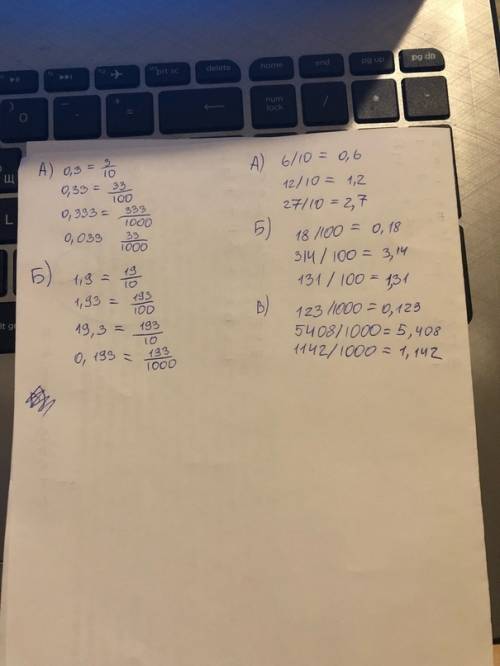 prt sc
delete
home
end
pg up
pg dn
num lock
А) 0,3 = 3/10
0,33 = 33/100
0,333 = 333/1000
0,033 33/1000
Б) 1,9 = 19/10
1,93 = 193/100
19,3 = 193/10
0,193 = 193/1000
А) 6/10 = 0,6
12/10 = 1,2
27/10 = 2,7
Б) 18/100 = 0,18
314/100 = 3,14
131/100 = 1,31
В) 123/1000 = 0,123
5408/1000 = 5,408
1142/1000 = 1,142